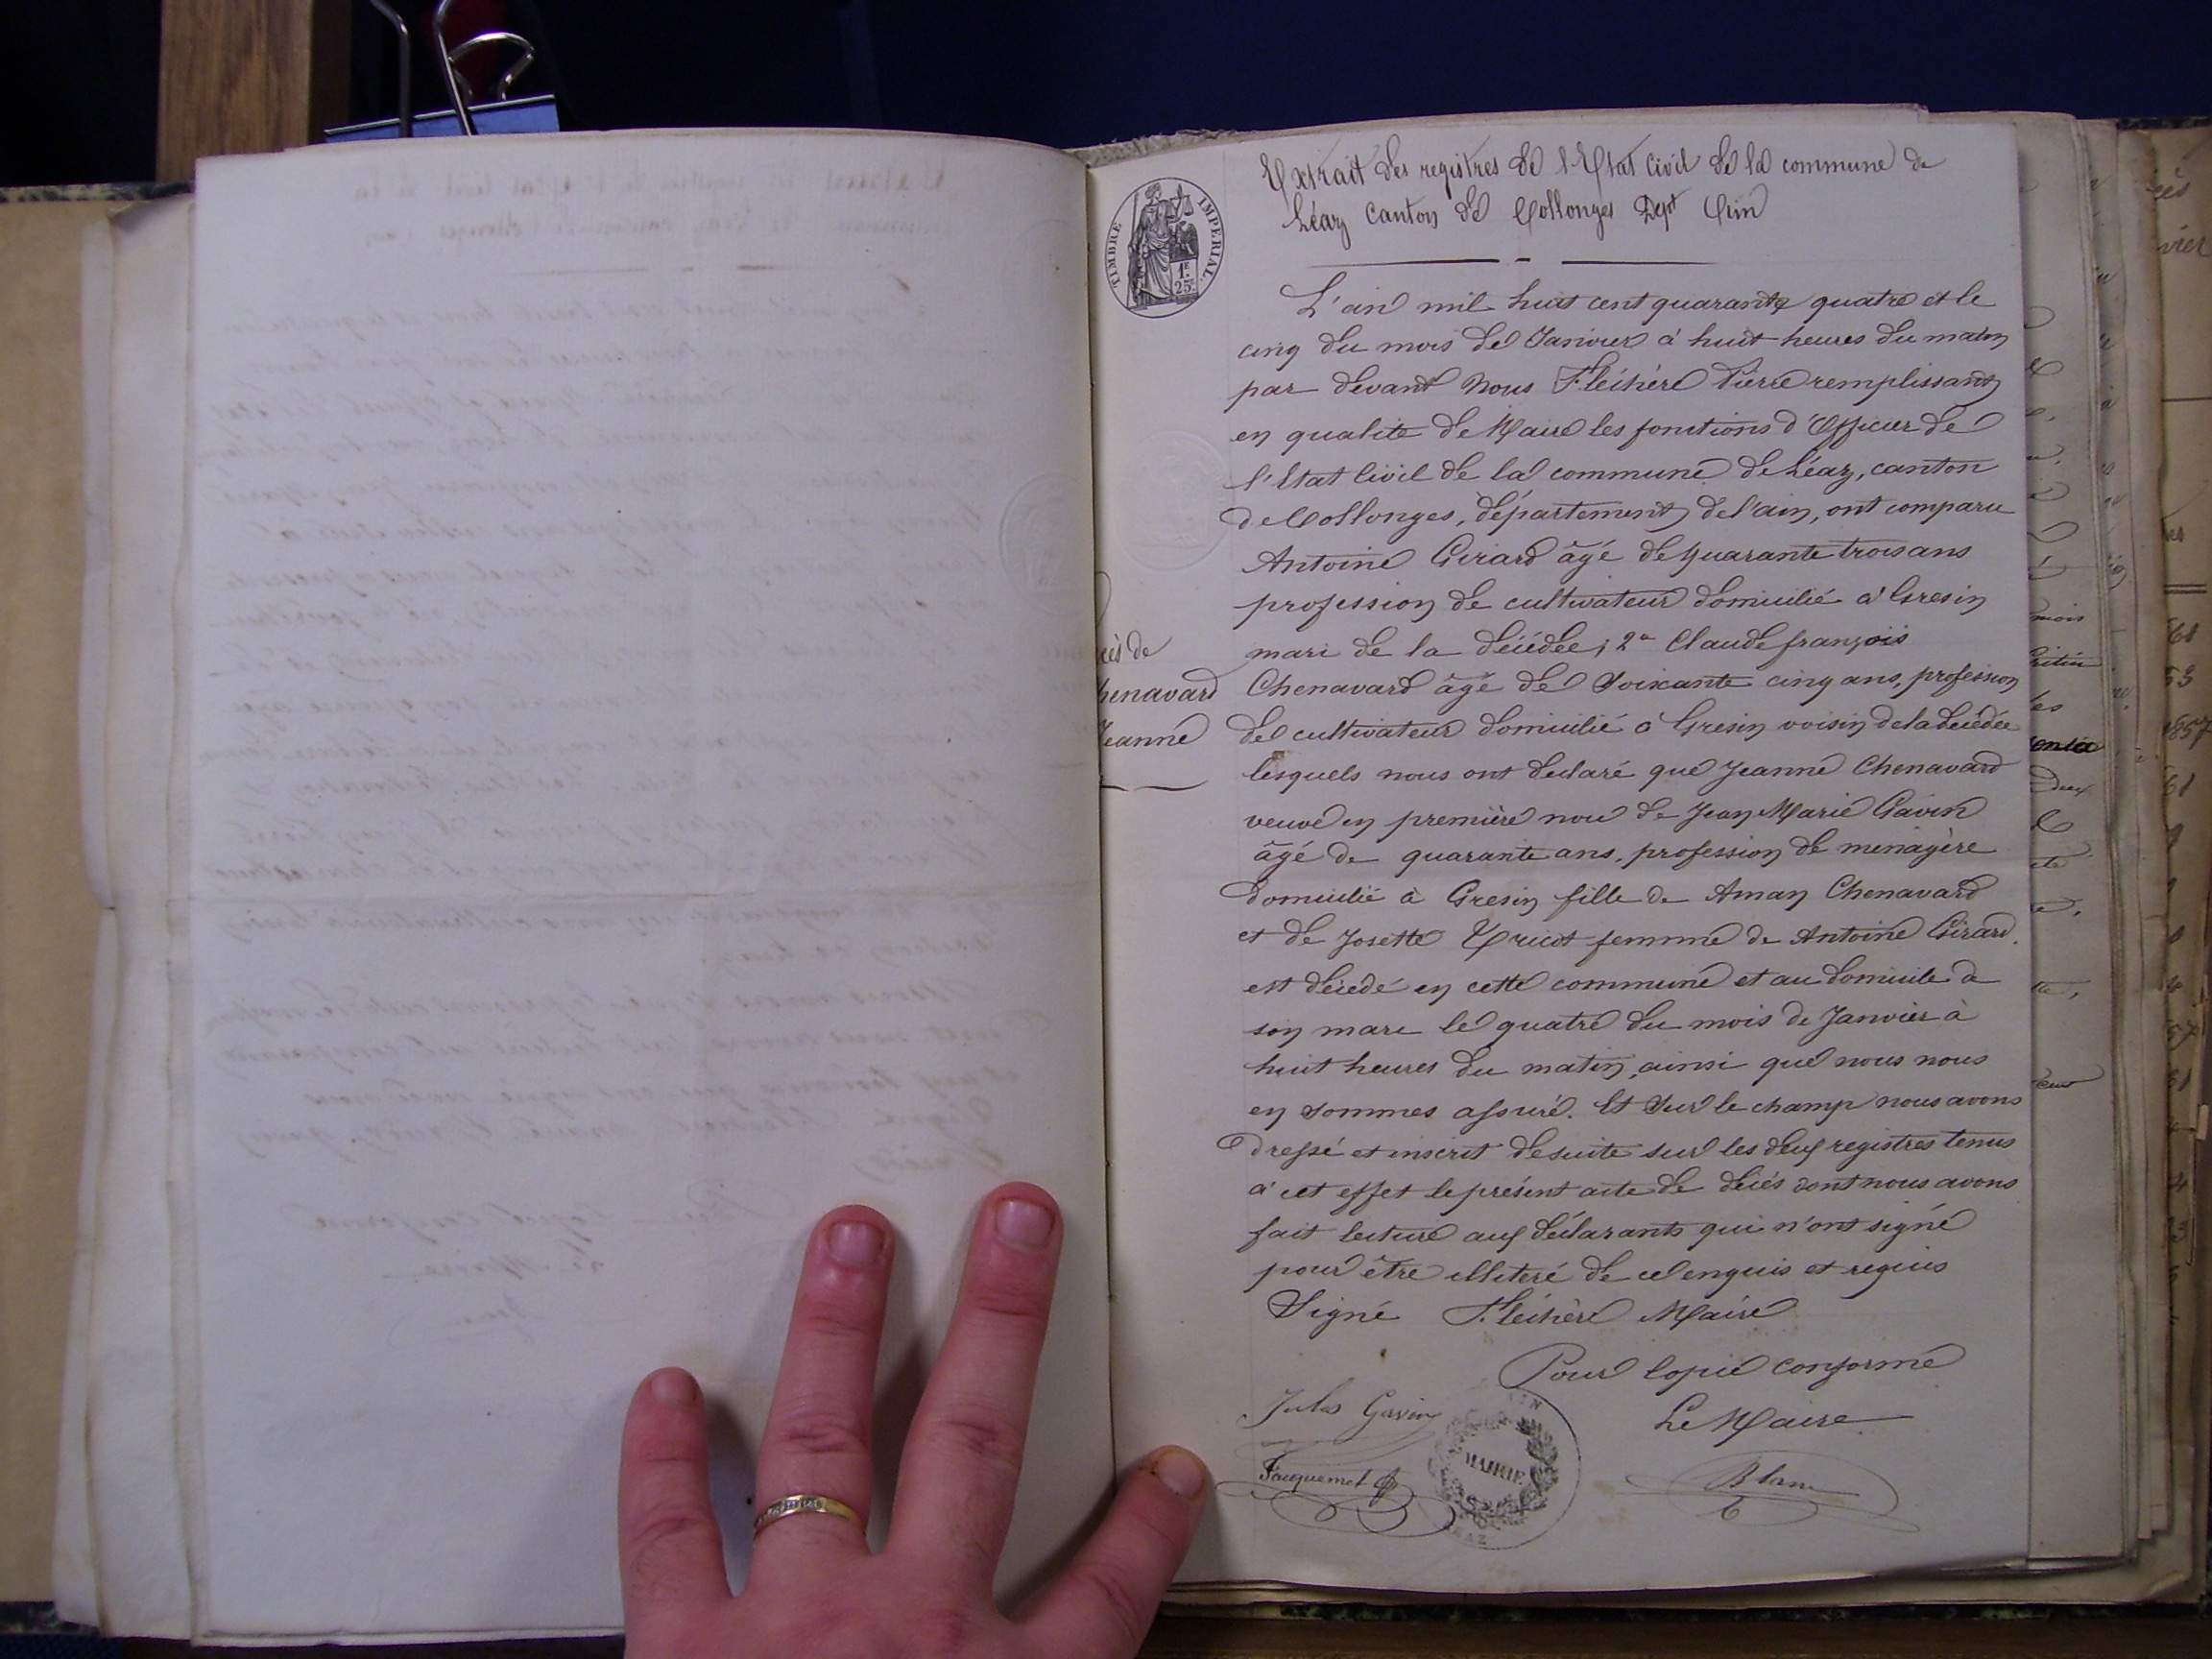 Extrait des registres de l'Etat Civil de la commune de
Léaz Canton de Collonges Dept Ain
TIMBRE IMPERIAL
1F.
25c
L'an mil huit cent quarante quatre et le
cinq du mois de Janvier à huit heures du matin
par devant Nous Fléchère Pierre remplissant
en qualite de Maire les fonctions d'Officier de
l'Etat Civil de la commune de Léaz, canton
de Collonges, département de l'ain, ont comparu
Antoine Girard âgé de quarante trois ans
profession de cultivateur domicilié à Gresin
mari de la décédée; 2° Claude françois
Chenavard âgé de Soixante cinq ans, profession
de cultivateur domicilié à Gresin voisin de la décédée
lesquels nous ont declaré que Jeanne Chenavard
veuve en première noce de Jean Marie Gavin
âgé de quarante ans, profession de menagère
domicilié à Gresin fille de Aman Chenavard
et de Josette femme de Antoine Girard.
est décédé en cette commune et au domicile de
son mari le quatre du mois de Janvier à
huit heures du matin, ainsi que nous nous
en sommes assuré. Et Sur le champ nous avons
dressé et inscrit desuite sur les deux registres tenus
à cet effet le présent acte de décés dont nous avons
fait lecture aux déclarants qui n'ont signé
pour être illiteré de ce enquis et requis
Signé Fléchère Maire
cès de
henavard
Jeanne
Pour Copie conforme
Le Maire
Jules Gavin
MAIRIE
Jacquemet
Blanc